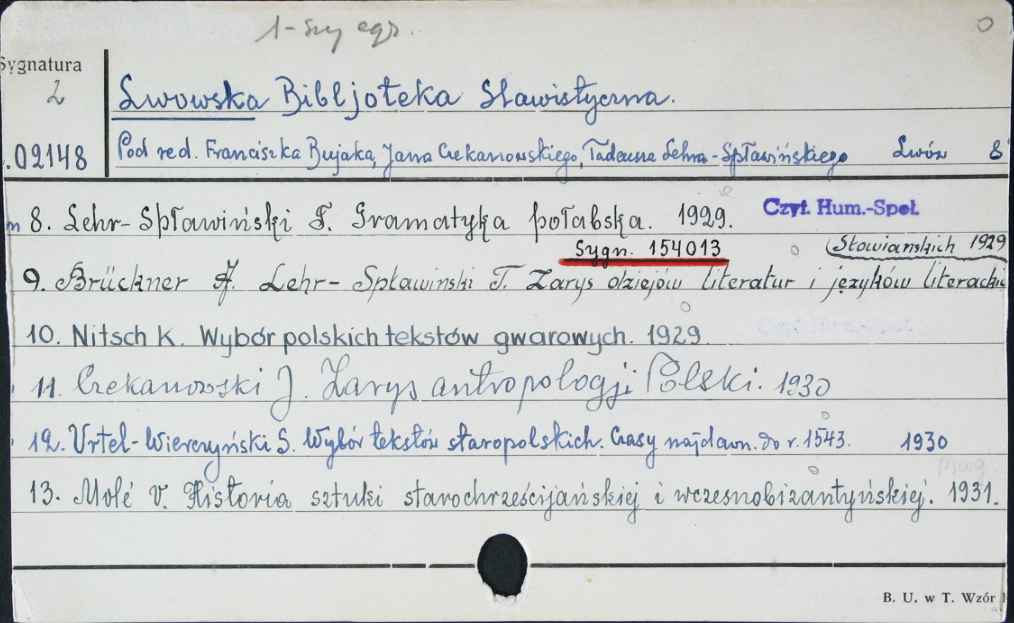 1-szy egz.
Sygnatura
2
Lwowska Bibljoteka Slawistyczna.
02148
Pod red. Franciszka Bujaka, Jana Czekanowskiego, Tadeusza Lehra-Spławińskiego Lwów 8°
8. Lehr-Spławiński T. Gramatyka połabska. 1929. Czyt. Hum.-Społ.
Sygn. 154013
(Słowiańskich 1929
9. Brückner A. Lehr-Spławiński T. Zarys dziejów literatur i języków literackich
10. Nitsch K. Wybór polskich tekstów gwarowych. 1929.
11. Czekanowski J. Zarys antropologji Polski. 1930
12. Vrtel-Wierczyński S. Wybór tekstów staropolskich. Czasy najdawn. do r. 1543. 1930
13. Molé V. Historia sztuki starochrześcijańskiej i wczesnobizantyńskiej. 1931.
B. U. w T. Wzór